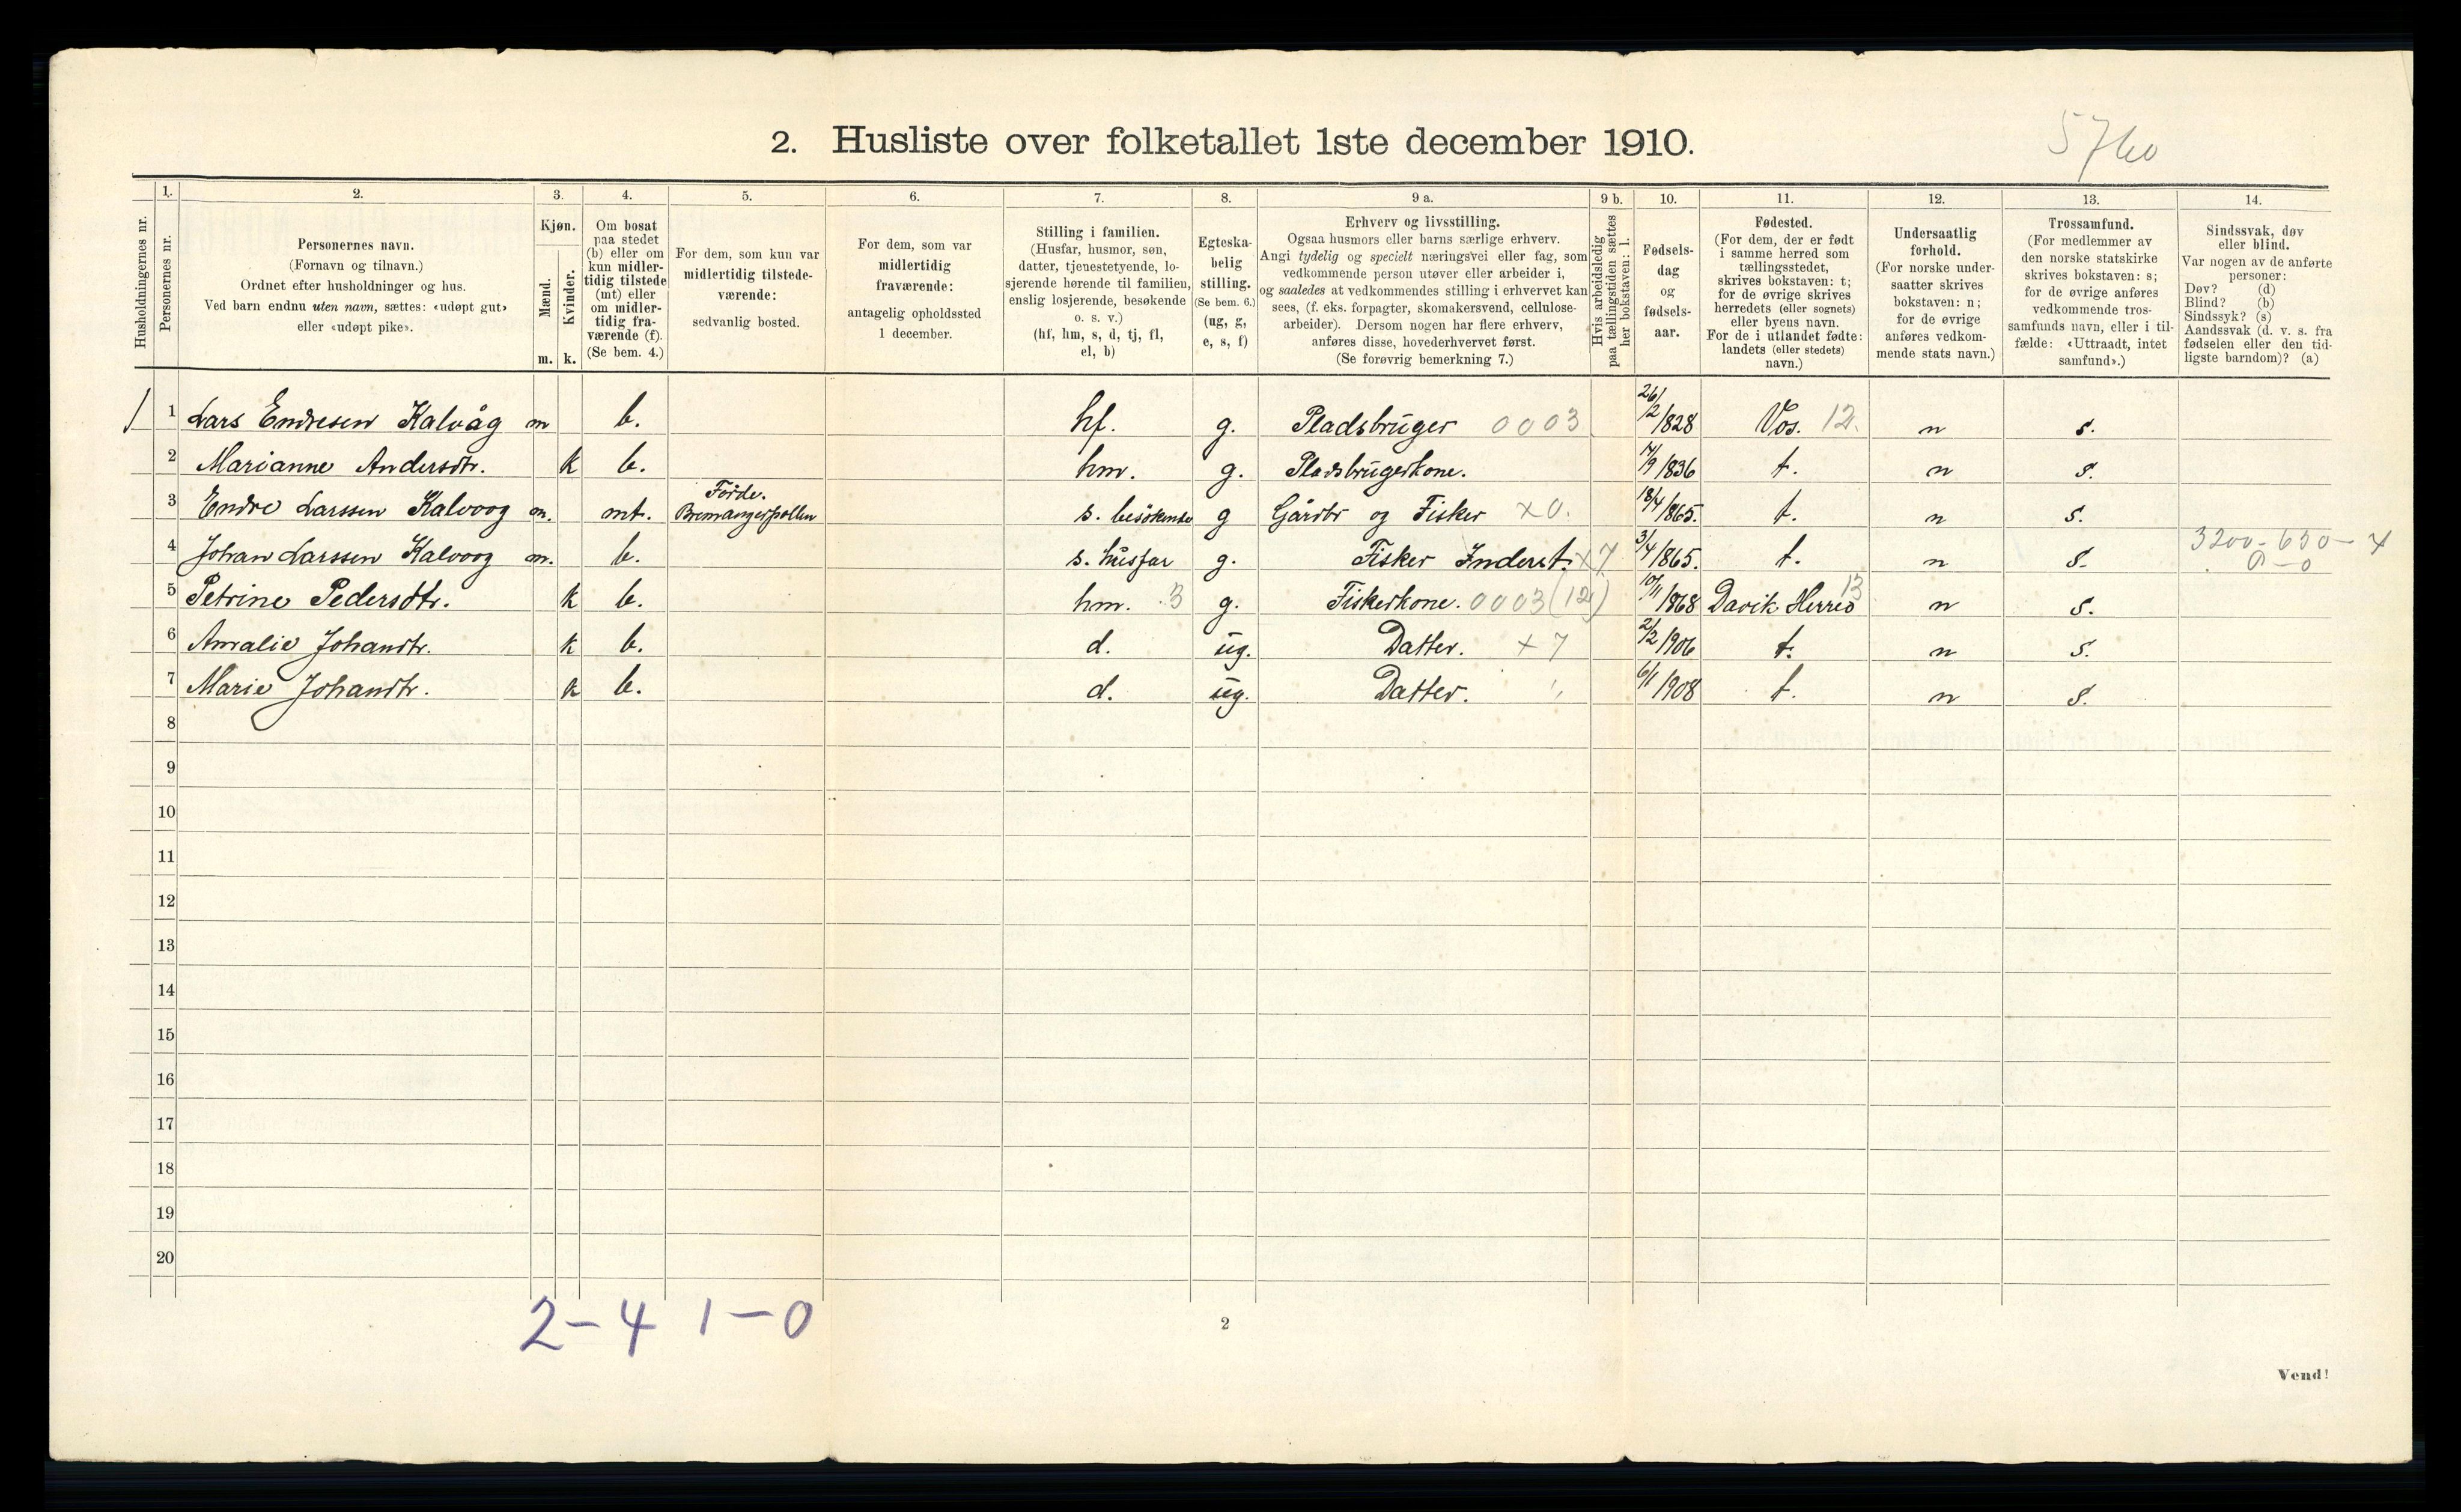 2. Husliste over folketallet 1ste december 1910.
5760
1. 2. 3. 4. 5. 6. 7. 8. 9 a. 9 b. 10. 11. 12. 13. 14.
Husholdningernes nr.
Personernes nr.
Personernes navn.
(Fornavn og tilnavn.)
Ordnet efter husholdninger og hus.
Ved barn endnu uten navn, sættes: «udøpt gut»
eller «udøpt pike».
Kjøn.
Mænd.
Kvinder.
m. k.
Om bosat
paa stedet
(b) eller om
kun midler-
tidig tilstede
(mt) eller
om midler-
tidig fra-
værende (f).
(Se bem. 4.)
For dem, som kun var
midlertidig tilstede-
værende:
sedvanlig bosted.
For dem, som var
midlertidig
fraværende:
antagelig opholdssted
1 december.
Stilling i familien.
(Husfar, husmor, søn,
datter, tjenestetyende, lo-
sjerende hørende til familien,
enslig losjerende, besøkende
o. s. v.)
(hf, hm, s, d, tj, fl,
el, b)
Egteska-
belig
stilling.
(Se bem. 6.)
(ug, g,
e, s, f)
Erhverv og livsstilling.
Ogsaa husmors eller barns særlige erhverv.
Angi tydelig og specielt næringsvei eller fag, som
vedkommende person utøver eller arbeider i,
og saaledes at vedkommendes stilling i erhvervet kan
sees, (f. eks. forpagter, skomakersvend, cellulose-
arbeider). Dersom nogen har flere erhverv,
anføres disse, hovederhvervet først.
(Se forøvrig bemerkning 7.)
Hvis arbeidsledig
paa tællingstiden sættes
her bokstaven: l.
Fødsels-
dag
og
fødsels-
aar.
Fødested.
(For dem, der er født
i samme herred som
tællingsstedet,
skrives bokstaven: t;
for de øvrige skrives
herredets (eller sognets)
eller byens navn.
For de i utlandet fødte:
landets (eller stedets)
navn.)
Undersaatlig
forhold.
(For norske under-
saatter skrives
bokstaven: n;
for de øvrige
anføres vedkom-
mende stats navn.)
Trossamfund.
(For medlemmer av
den norske statskirke
skrives bokstaven: s;
for de øvrige anføres
vedkommende tros-
samfunds navn, eller i til-
fælde: «Uttraadt, intet
samfund».)
Sindssvak, døv
eller blind.
Var nogen av de anførte
personer:
Døv? (d)
Blind? (b)
Sindssyk? (s)
Aandssvak (d. v. s. fra
fødselen eller den tid-
ligste barndom)? (a)
1 Lars Endresen Kalvåg m b. hf. g. Pladsbruger 0003 26/12/828 Vos. 12. n s.
2 Marianne Andersdtr. k b. hm. g. Pladsbrugerkone. 14/9 1836 t. n s.
3 Endre Larssen Kalvoog m. mt. Förde. Bremangerpollen s. besökende g Gårdbr og Fisker x0. 18/4/865. t. n s.
4 Johan Larssen Kalvoog m. b. s. husfar g. Fisker Inderst. x7 3/4/865. t. n s. 3200-650-4
0-0
5 Petrine Pedersdtr. k b. hm. 3 g. Fiskerkone. 0003(12) 10/11/868 Davik Herred 13 n s.
6 Amalie Johansdtr. k b. d. ug. Datter. x7 2/2 1906 t. n s.
7 Marie Johansdtr. k b. d. ug. Datter. 6/1 1908 t. n s.
8
9
10
11
12
13
14
15
16
17
18
19
20
2-4 1-0
2
Vend!